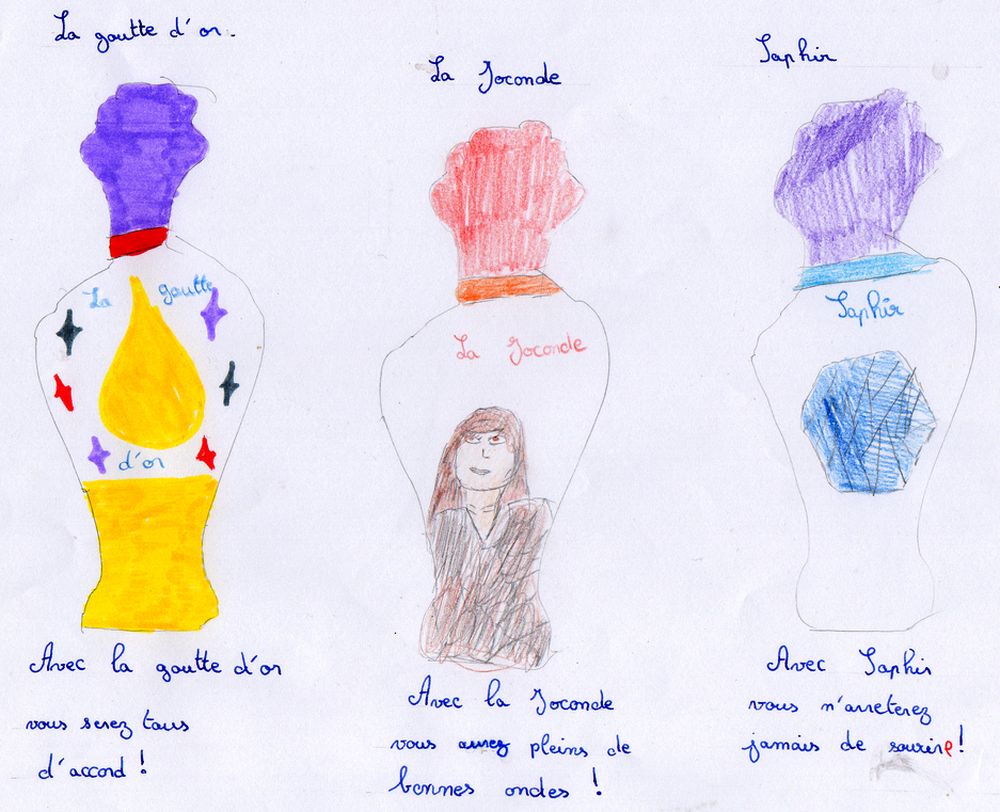 La goutte d'or.
La Joconde
Saphir
La goutte
d'or
La Joconde
Saphir
Avec la goutte d'or
vous serez tous
d'accord !
Avec la Joconde
vous aurez pleins de
bonnes ondes !
Avec Saphir
vous n'arreterez
jamais de sourire !